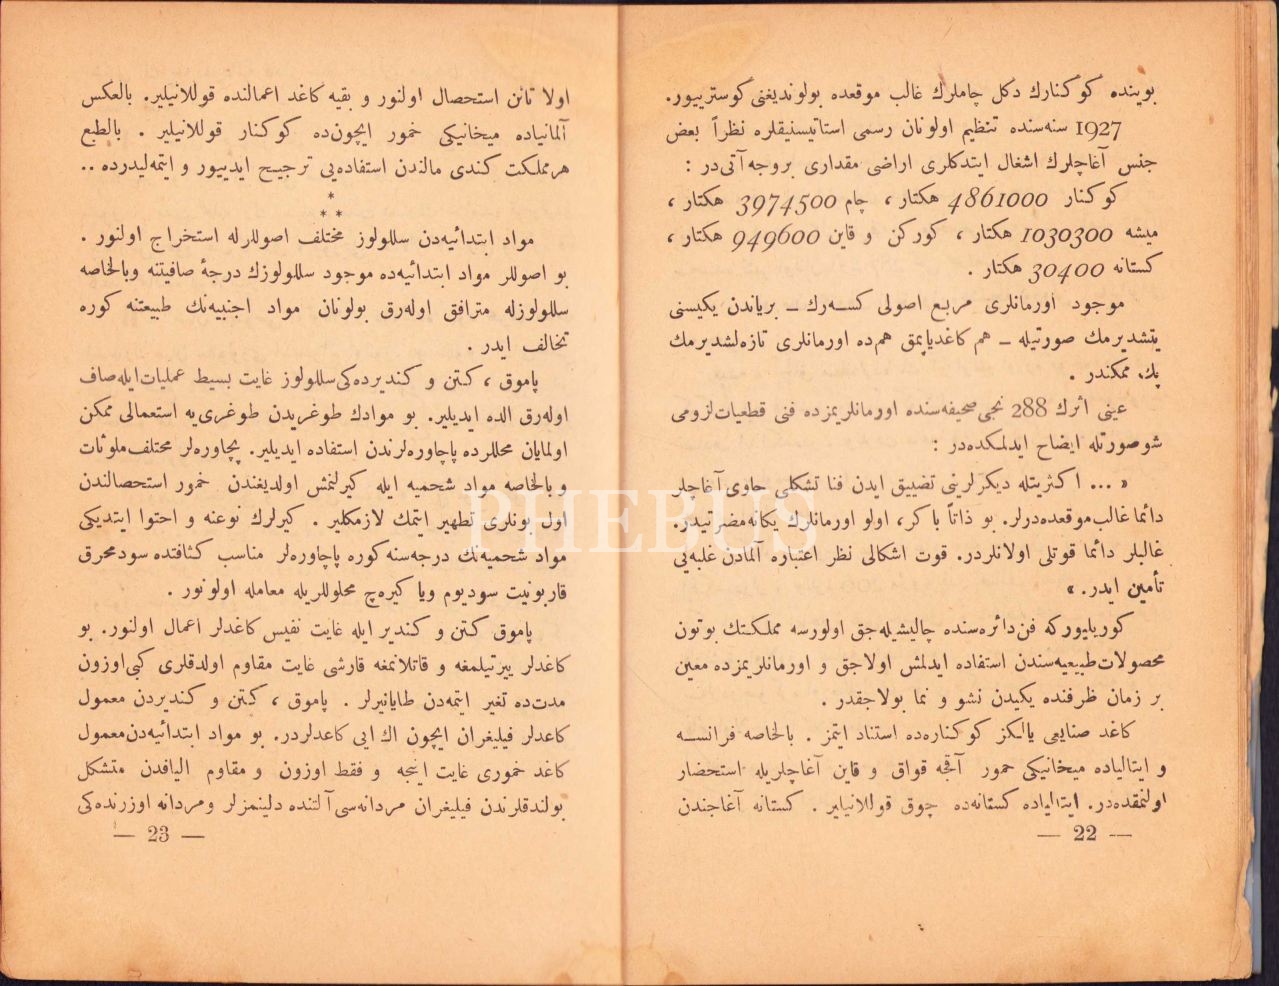 بوينده كوكنارك دكل چاملرك غالب موقعده بولونديغنى كوسترييور.
1927 سنه‌سنده تنظيم اولونان رسمى استاتيستيقلره نظراً بعض
جنس آغاچلرك اشغال ايتدكلرى اراضى مقدارى بروجه آتى در :
كوكنار 4861000 هكتار، چام 3974500 هكتار ،
ميشه 1030300 هكتار ، كوركن و قاين 949600 هكتار ،
كستانه 30400 هكتار .
موجود اورمانلرى مربع اصولى كسه‌رك ــ برياندن يكيسنى
يتشديرمك صورتيله ــ هم كاغدياپمق هم‌ده اورمانلرى تازه‌لشديرمك
پك ممكندر .
عينى اثرك 288 نجى صحيفه‌سنده اورمانلريمزده فنى قطعيات لزومى
شو صورتله ايضاح ايدلمكده‌در :
« ... اكثريتله ديكرلرينى تضييق ايدن فنا تشكلى حاوى آغاچلر
دائما غالب موقعده‌درلر. بو ذاتاً باكر، اولو اورمانلرك يكانه مضرتيدر.
غالبلر دائما قوتلى اولانلردر. قوت اشكالى نظر اعتباره آلمادن غلبه‌يى
تأمين ايدر. »
كوريليوركه فن دائره‌سنده چاليشيله‌جق اولورسه مملكتك بوتون
محصولات طبيعيه‌سندن استفاده ايدلمش اولاجق و اورمانلريمزده معين
بر زمان ظرفنده يكيدن نشو و نما بولاجقدر .
كاغد صنايعى يالكز كوكناره‌ده استناد ايتمز . بالخاصه فرانسه
و ايتالياده ميخانيكى خمور آقجه قواق و قاين آغاچلريله استحضار
اولنمقده‌در. ايتالياده كستانه‌ده چوق قوللانيلير . كستانه آغاجندن
— 22 —
اولا تانن استحصال اولنور و بقيه كاغد اعمالنده قوللانيلير. بالعكس
آلمانياده ميخانيكى خمور ايچون‌ده كوكنار قوللانيلير . بالطبع
هرمملكت كندى مالندن استفاده‌يى ترجيح ايدييور و ايتمه‌ليدرده ..
*
* *
مواد ابتدائيه‌دن سللولوز مختلف اصوللرله استخراج اولنور .
بو اصوللر مواد ابتدائيه‌ده موجود سللولوزك درجۀ صافيتنه وبالخاصه
سللولوزله مترافق اوله‌رق بولونان مواد اجنبيه‌نك طبيعتنه كوره
تخالف ايدر .
پاموق ، كتن و كنديرده‌كى سللولوز غايت بسيط عمليات ايله صاف
اوله‌رق الده ايديلير. بو موادك طوغريدن طوغرى‌يه استعمالى ممكن
اولمايان محللرده پاچاوره‌لرندن استفاده ايديلير. پچاوره‌لر مختلف ملوثات
و بالخاصه مواد شحميه ايله كيرلنمش اولديغندن خمور استحصالندن
اول بونلرى تطهير ايتمك لازمكلير . كيرلرك نوعنه و احتوا ايتديكى
مواد شحميه‌نك درجه‌سنه كوره پاچاوره‌لر مناسب كثافتده سودمحرق
قاربونيت سوديوم ويا كيره‌ج محلوللريله معامله اولونور .
پاموق كتن و كندير ايله غايت نفيس كاغدلر اعمال اولنور. بو
كاغدلر ييرتيلمغه و قاتلانمغه قارشى غايت مقاوم اولدقلرى كبى اوزون
مدت‌ده تغير ايتمه‌دن طايانيرلر . پاموق ، كتن و كنديردن معمول
كاغدلر فيليغران ايچون اك ايى كاغدلردر. بو مواد ابتدائيه‌دن معمول
كاغد خمورى غايت اينجه و فقط اوزون و مقاوم اليافدن متشكل
بولندقلرندن فيليغران مردانه‌سى آلتنده دلينمزلر ومردانه اوزرنده‌كى
— 23 —
PHEBUS